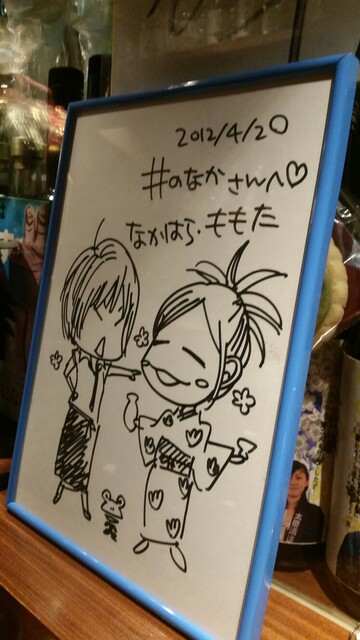 2012/4/20
井のなかさんへ♡
なかはら・ももた